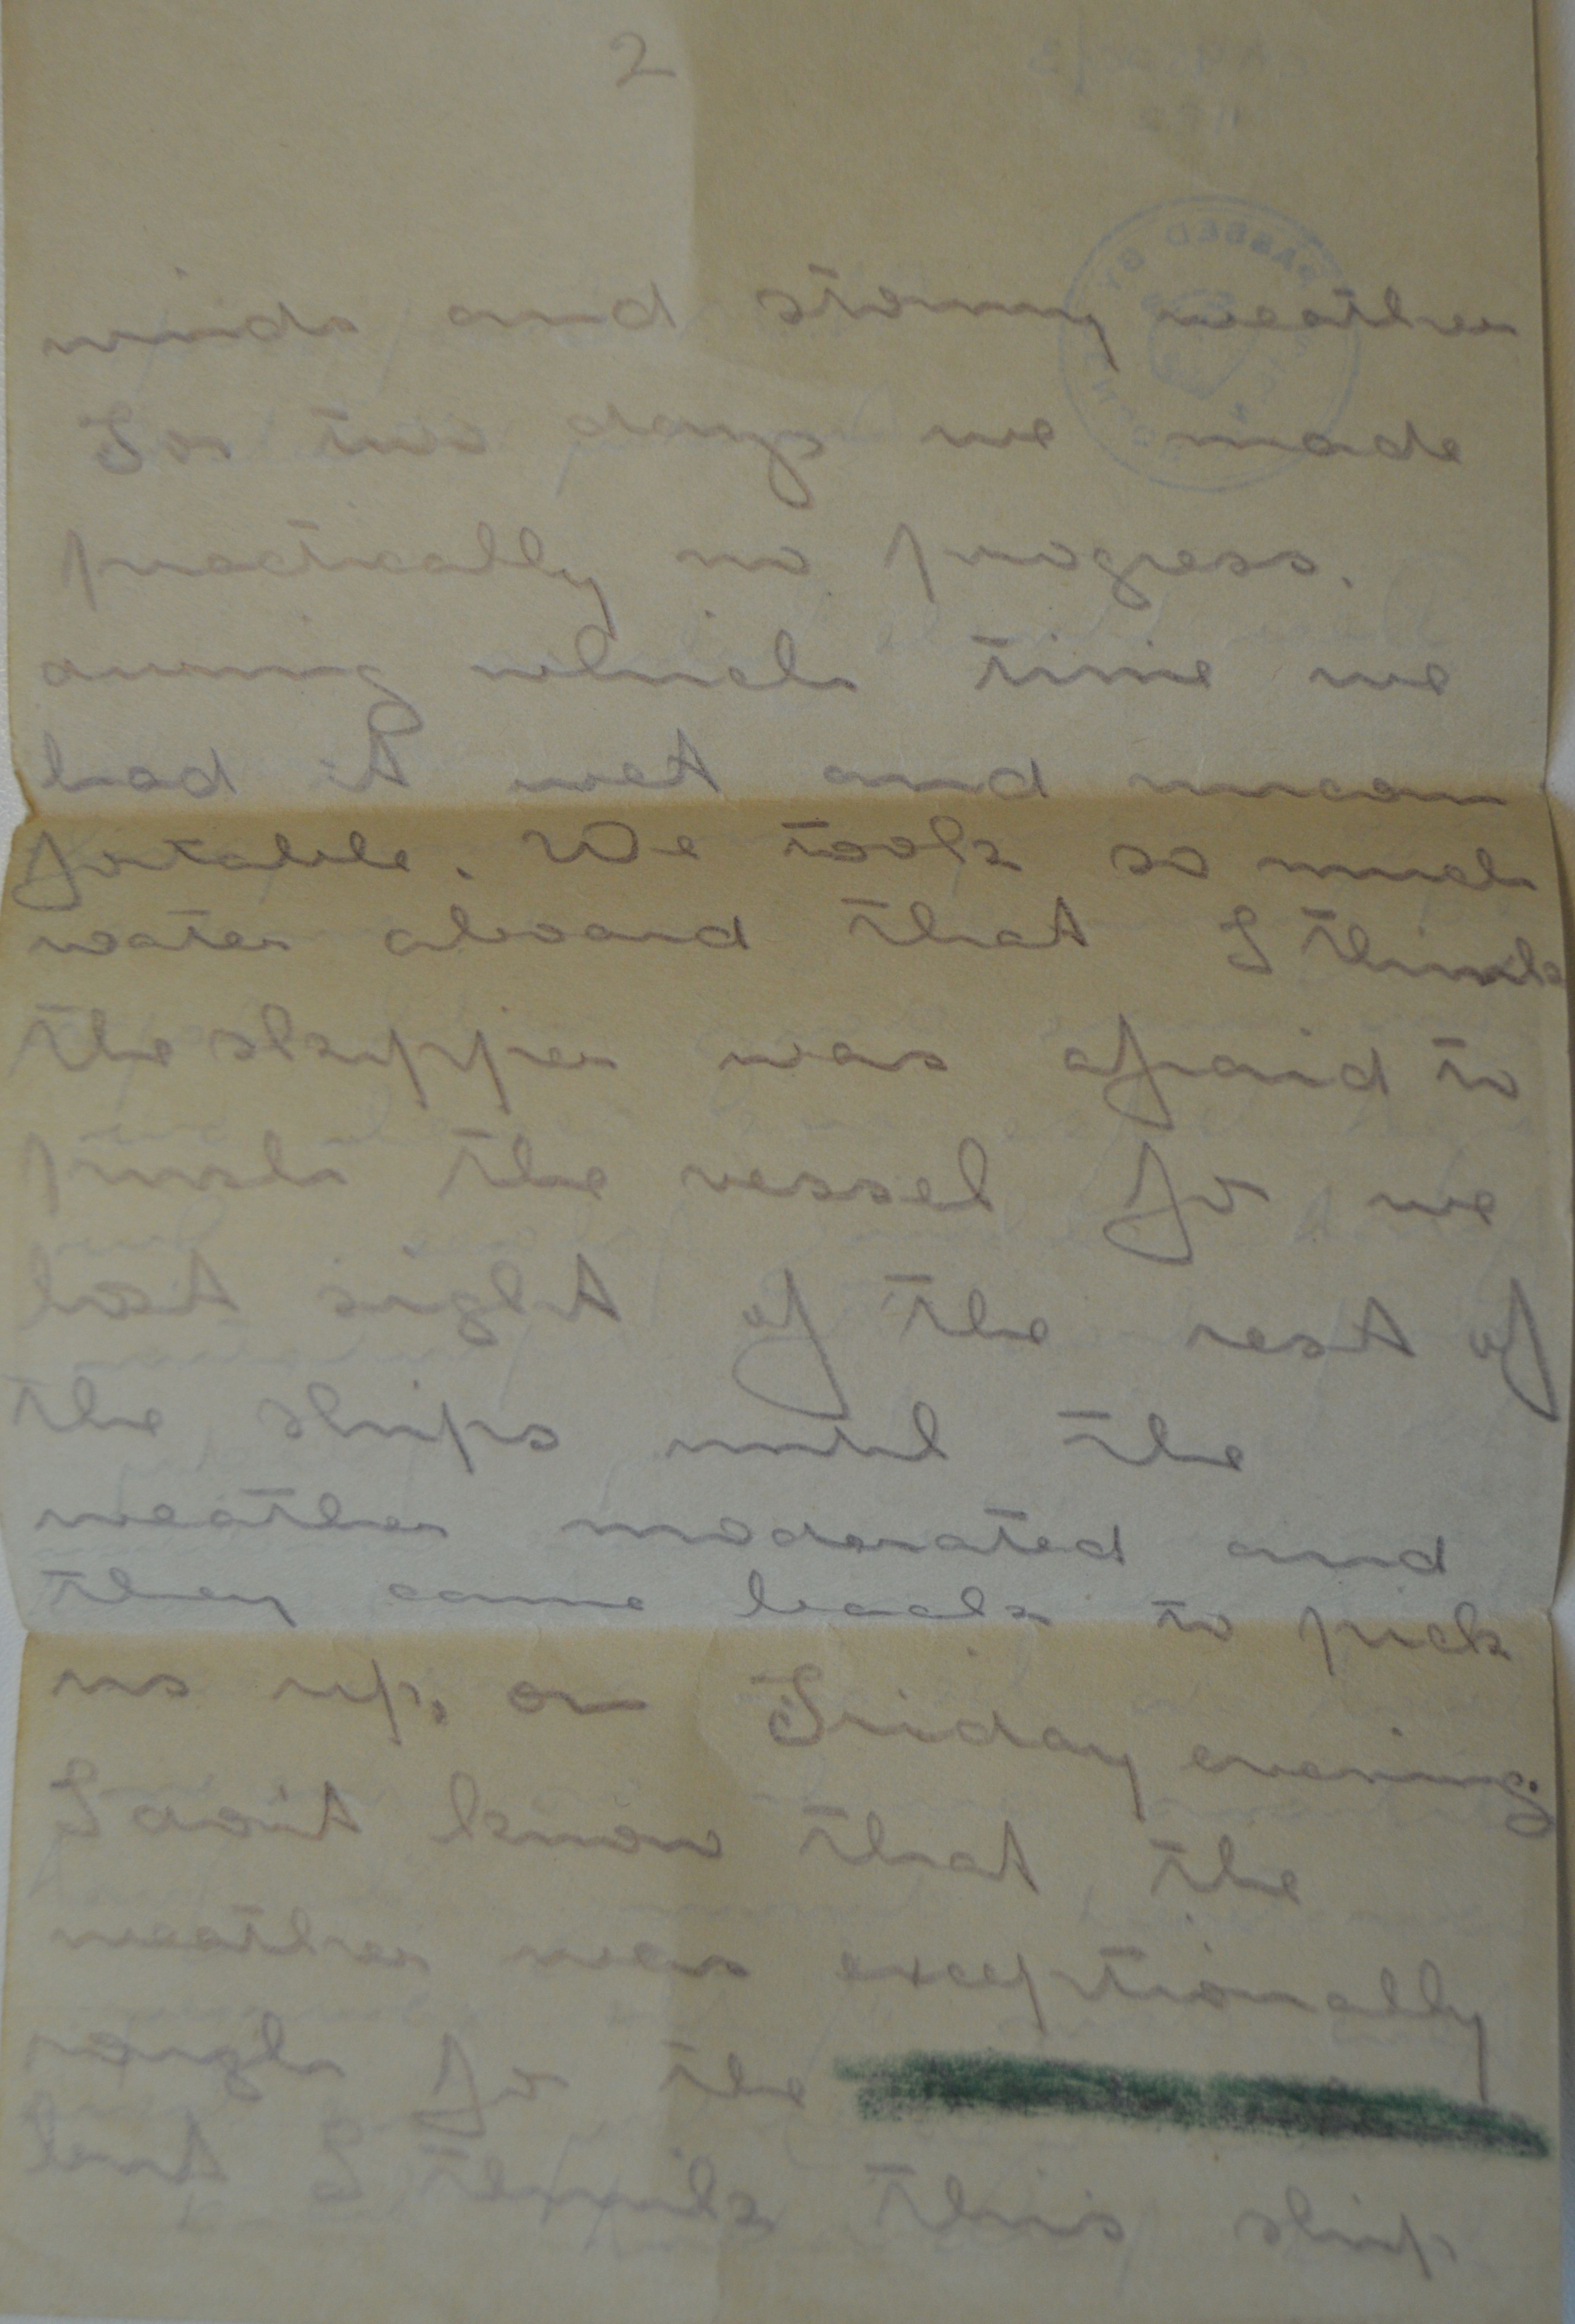 2
PASSED BY
winds and stormy weather
For two days we made
practically no progress.
during which time we
had it wet and uncom
fortable. We took so much
water aboard that I think
the skipper was afraid to
push the vessel for we
lost sight of the rest of
the ships until the
weather moderated and
they came back to pick
us up, on Friday evening.
I don't know that the
weather was exceptionally
rough for the
but I think this ship